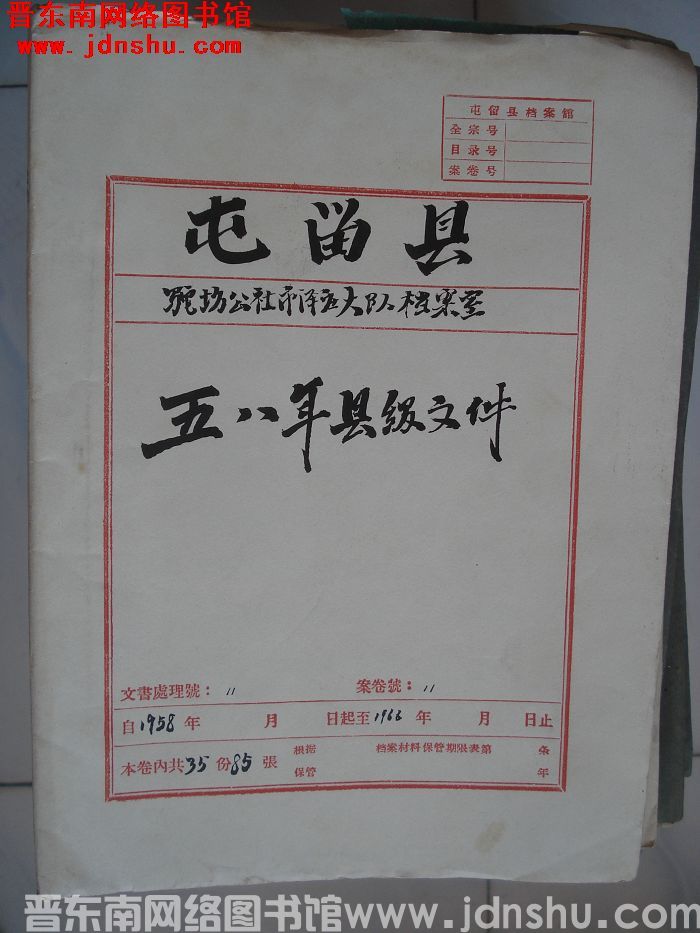 晋东南网络图书馆
www.jdnshu.com
屯留县档案館
全宗号
目录号
案卷号
屯留县
公社 大队档案室
五八年县级文件
文書處理號： 11 案卷號： 11
自1958年 月 日起至1966年 月 日止
本卷内共35份85張 根据 档案材料保管期限表第 条
保管 年
晋东南网络图书馆www.jdnshu.com